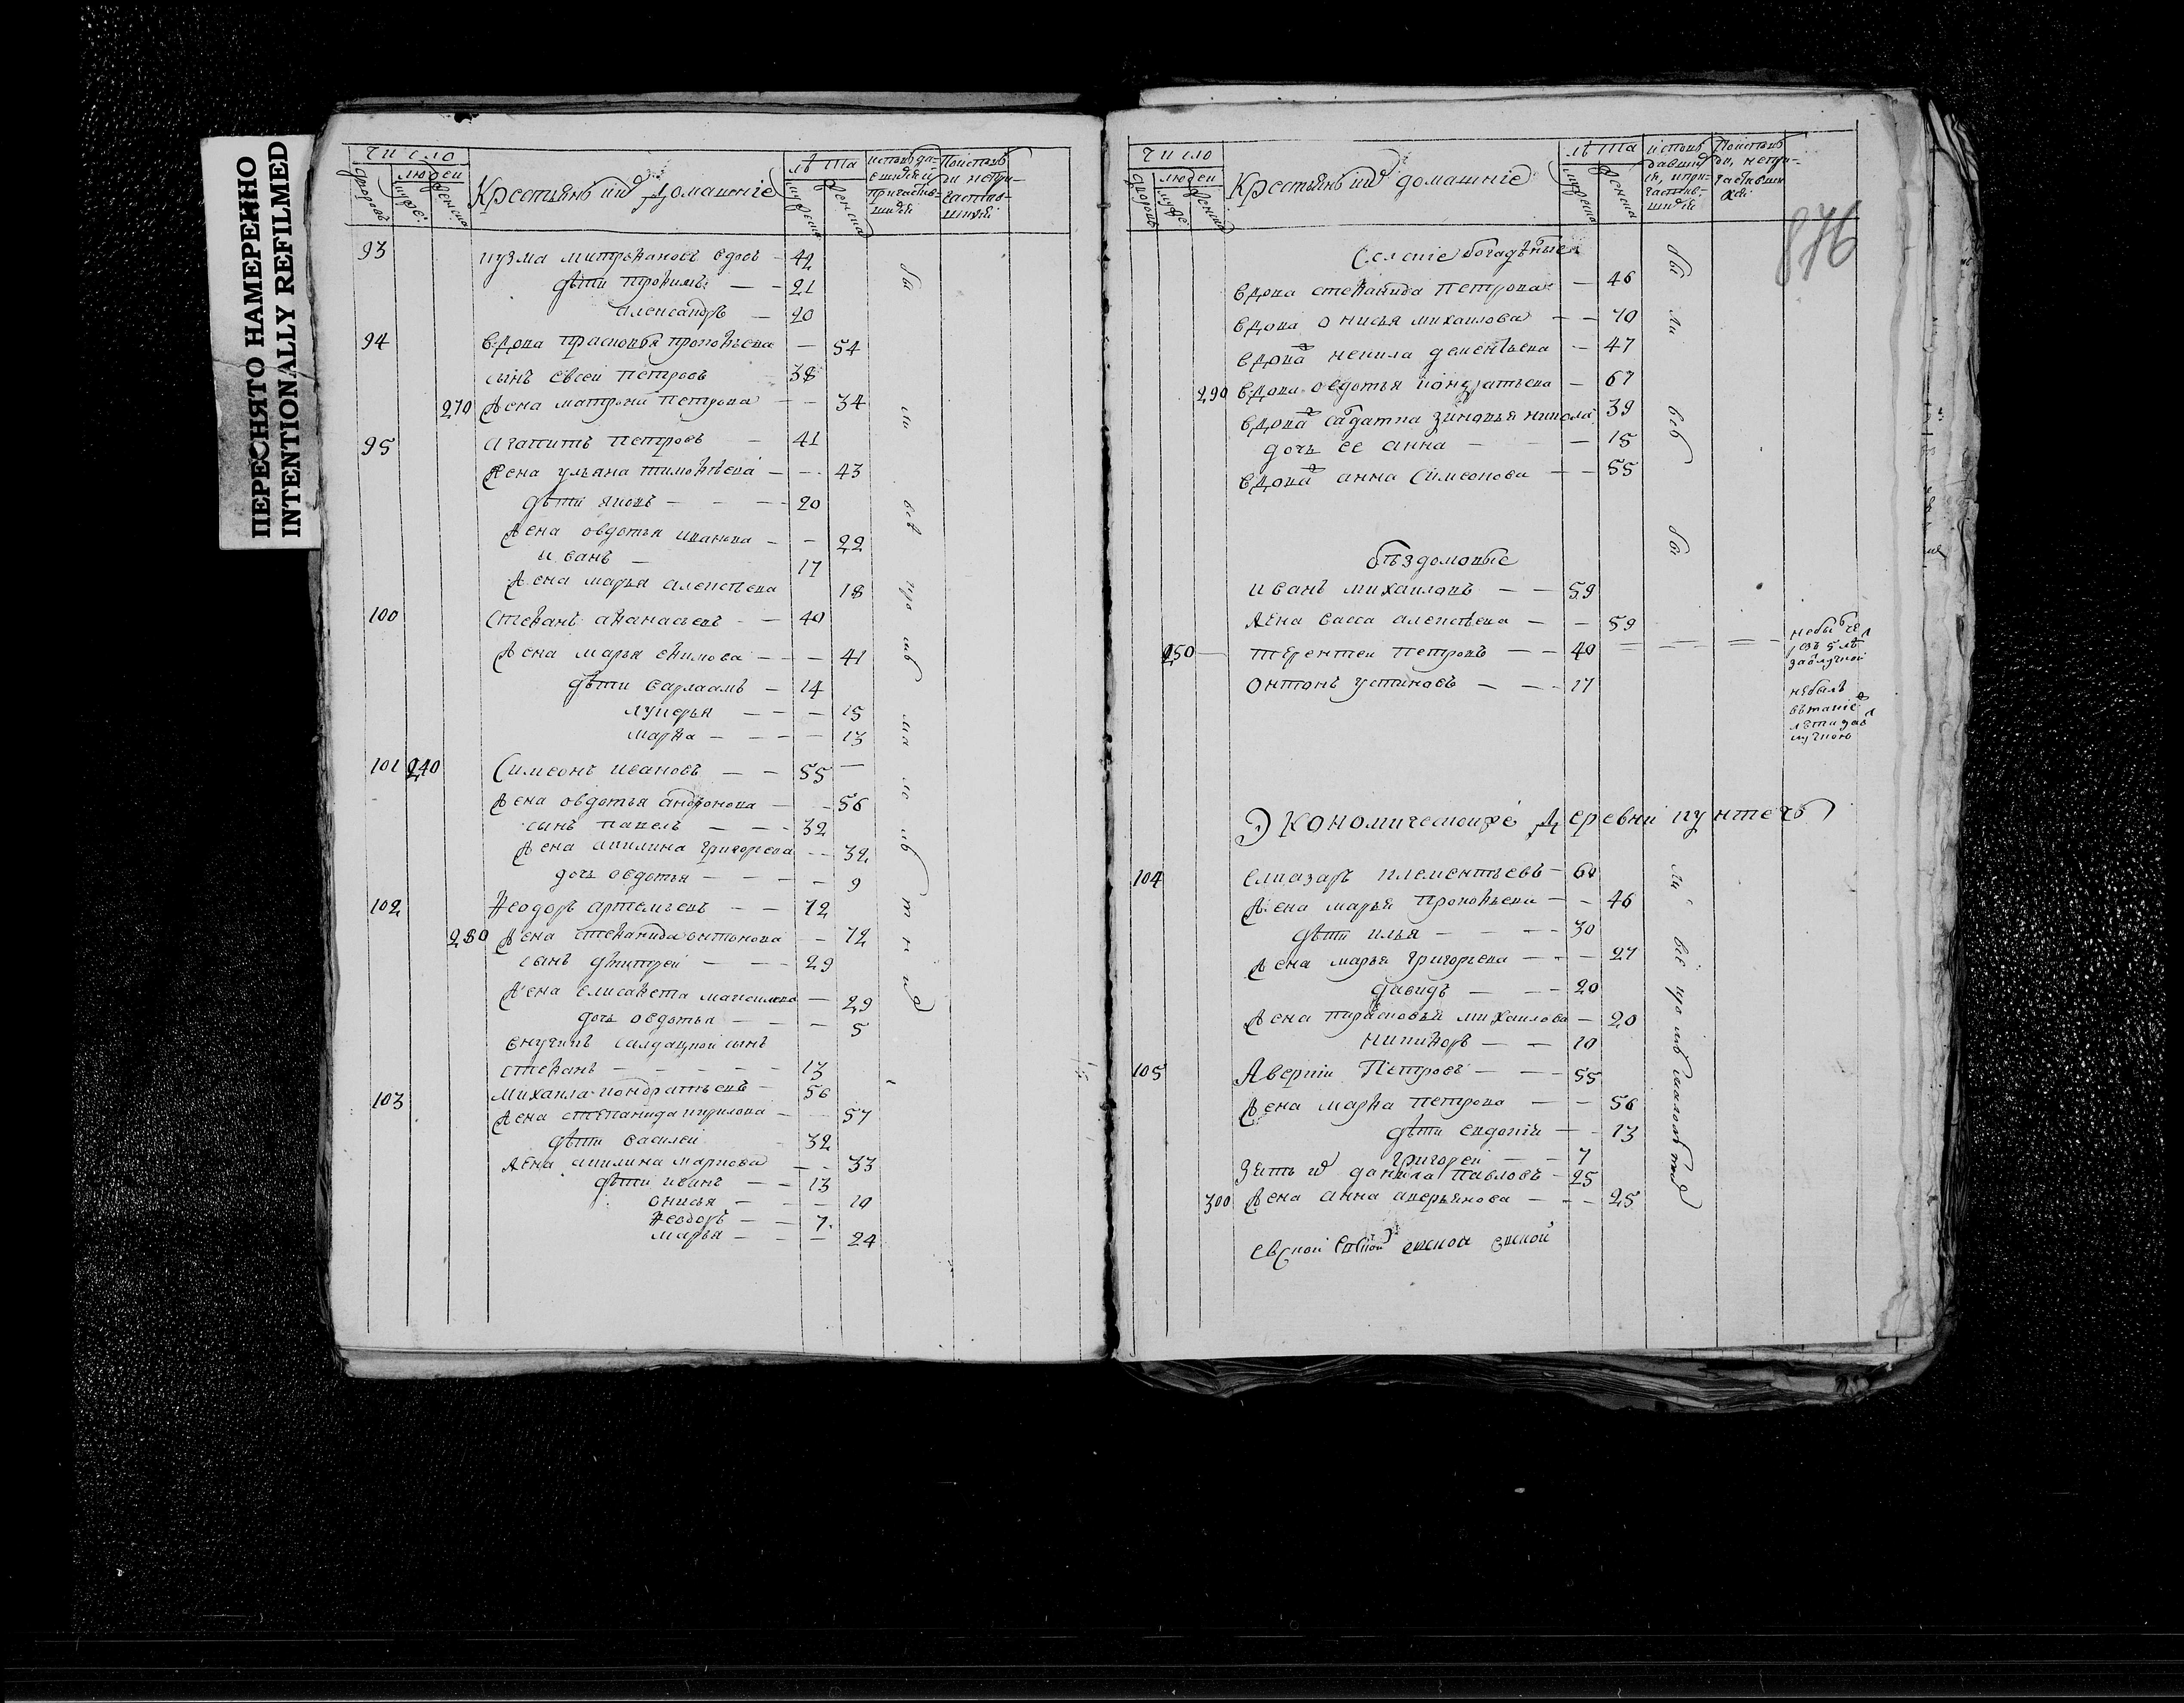 ПЕРЕСНЯТО НАМЕРЕННО
INTENTIONALLY REFILMED
число
людей
дворовъ
мужес:
женска
Крестьяне и ихъ домашніе
лѣта
мужеска
женска
93 кузма митрѳановъ вдовъ - 42
дѣти троѳимъ - - 21
александръ - 20
94 вдова прасковья прокоѳьева - 54
сынъ евсей петровъ 38
270 жена матрона петрова - - 34
95 агапитъ петровъ - 41
жена ульяна тимоѳѣева - - 43
дѣти яковъ - - - 20
жена овдотья иванова - - 22
иванъ - 17
жена марья алексѣева 18
100 стеѳанъ аѳанасьевъ - - 40
жена марья еѳимова - - - 41
дѣти варлаамъ - 14
лукерья - - - 15
марѳа - - - - 13
101 240 Симеонъ ивановъ - - 55
жена овдотья андронова - - 56
сынъ павелъ - - - 32
жена акилина григорьева - - 32
дочь овдотья - - - - 9
102 ѳеодоръ артемьевъ - - 72
280 жена стеѳанида онтонова - 72
сынъ дмитрей - - - 29
жена елисавета максимова - 29
дочь овдотья - - - 5
внучикъ салдацкой сынъ
стеѳанъ - - - - - 13
103 михаила кондратьевъ - 56
жена степанида кирилова - 57
дѣти василей - 32
жена акилина маркова - - 33
дѣти иванъ - - 13
онисья - - - 10
ѳеодоръ - - 7
марья - - - 24
число
людей
дворовъ
мужес
женска
Крестьяне и ихъ домашніе
лѣта
мужеска
женска
876
Селскіе богадѣлные
вдова стеѳанида петрова - 46
вдова онисья михаилова - - 70
вдова ненила дементьева - 47
290 вдова овдотья кондратьева - 67
вдова салдатка зиновья никола 39
дочь ее анна - - 15
вдова анна симеонова - - 55
бѣздомовые
иванъ михаиловъ - - 59
жена васса алексѣева - - 59
250 терентеи петровъ - - 40
онтонъ устиновъ - - - 17
небылъ
Экономическоже деревни кунтечь
104 елиазаръ клементьевъ - 60
жена марья прокоѳьева - - 46
дѣти илья - - - 30
жена марья григорьева - - - 27
давидъ - - - 20
жена парасковья михаилова - 20
никиѳоръ - - 10
105 Аверкіи Петровъ - - - 55
жена марѳа петрова - - 56
дѣти евдокія - - 13
григорей - - 7
зять их данила павловъ - 25
300 жена анна аверьянова - - - 25